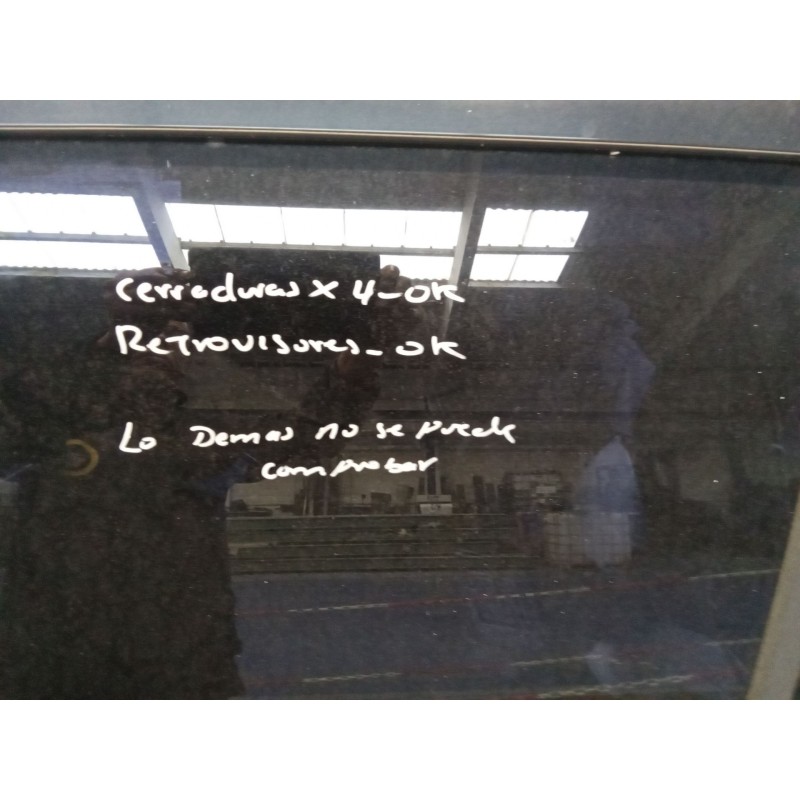 Cerraduras x 4-OK
Retrovisores-OK
Lo Demas no se puede
comprobar